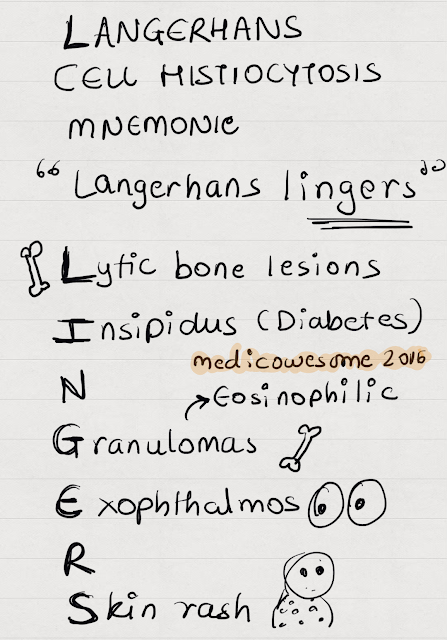 LANGERHANS
CELL HISTIOCYTOSIS
MNEMONIC
"Langerhans lingers"
Lytic bone lesions
Insipidus (Diabetes)
medicowesome 2016
N
Eosinophilic
Granulomas
Exophthalmos
R
Skin rash